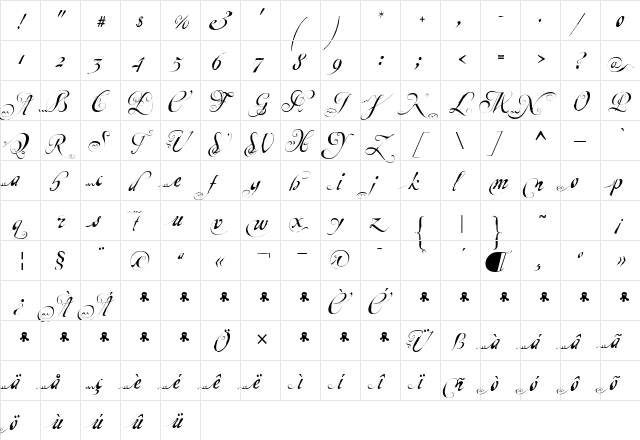 ! " # $ % & ' ( ) * + , - . / 0
1 2 3 4 5 6 7 8 9 : ; < = > ? @
A B C D E F G H I J K L M N O P
Q R S T U V W X Y Z [ \ ] ^ _ `
a b c d e f g h i j k l m n o p
q r s t u v w x y z { | } ~ ¡
¦ § ¨ © ª « ¬ ­– ® ¯ ° ´ ¶ ¸ º »
¿ À Á È É
Ö × Ü ß à á â ã
ä å ç è é ê ë ì í î ï ñ ò ó ô õ
ö ù ú û ü